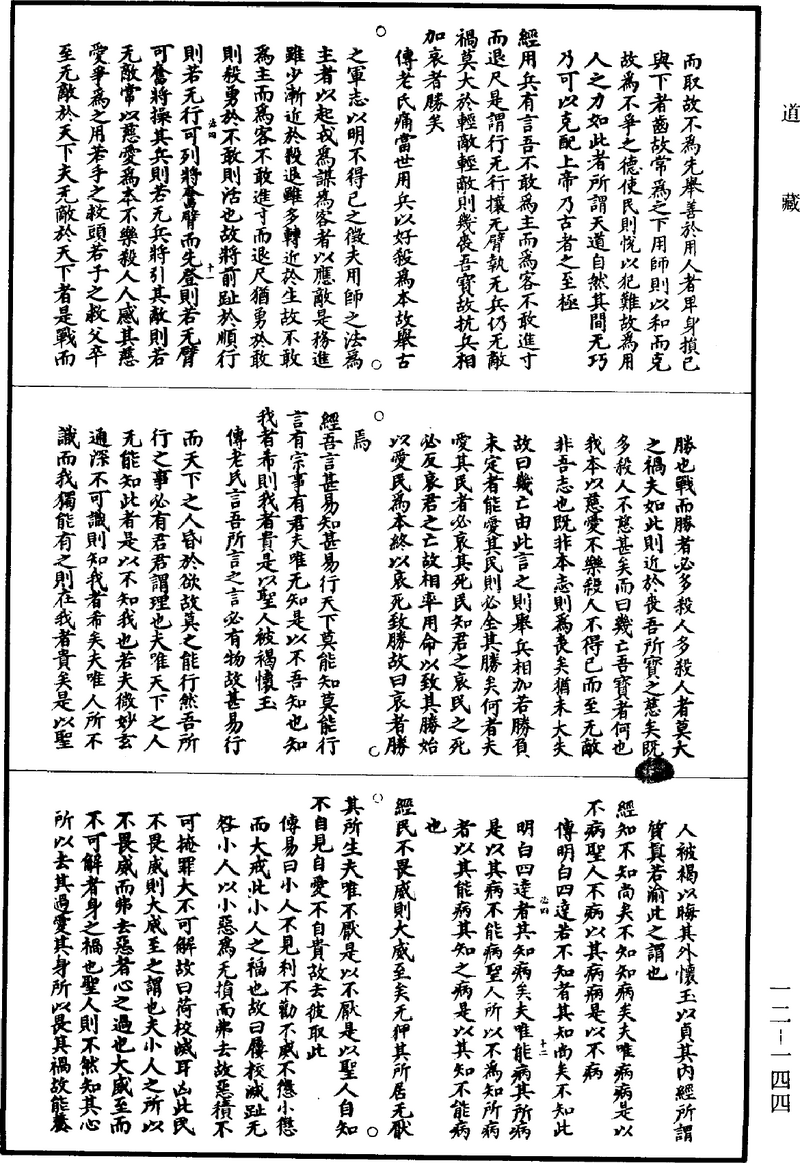 道藏
而取故不為先舉善於用人者卑身損己
與下者齒故常為之下用師則以和而克
故為不爭之德使民則悅以犯難故為用
人之力如此者所謂天道自然其間无巧
乃可以克配上帝乃古者之至極
經用兵有言吾不敢為主而為客不敢進寸
而退尺是謂行无行攘无臂執无兵仍无敵
禍莫大於輕敵輕敵則幾喪吾寶故抗兵相
加哀者勝矣
傳老氏痛當世用兵以好殺為本故舉古
之軍志以明不得已之徵夫用師之法為
主者以起戎為謀為客者以應敵是務進
雖少漸近於殺退雖多轉近於生故不敢
為主而為客不敢進寸而退尺猶勇於敢
則殺勇於不敢則活也故將前趾於順行
則若无行可列將奮臂而先登則若无臂
可奮將操其兵則若无兵將引其敵則若
无敵常以慈愛為本不樂殺人人感其慈
愛爭為之用若手之救頭若子之救父卒
至无敵於天下夫无敵於天下者是戰而
勝也戰而勝者必多殺人多殺人者莫大
之禍夫如此則近於喪吾所寶之慈矣既
多殺人不慈甚矣而曰幾亡吾寶者何也
我本以慈愛不樂殺人不得已而至无敵
非吾志也既非本志則為喪矣猶未大失
故曰幾亡由此言之則舉兵相加若勝負
未定者能愛其民則必全其勝矣何者夫
愛其民者必哀其死民知君之哀民之死
必反哀君之亡故相率用命以致其勝始
以愛民為本終以哀死致勝故曰哀者勝
焉
經吾言甚易知甚易行天下莫能知莫能行
言有宗事有君夫唯无知是以不吾知也知
我者希則我者貴是以聖人被褐懷玉
傳老氏言吾所言之言必有物故甚易行
而天下之人昏於欲故莫之能行然吾所
行之事必有君君謂理也夫唯天下之人
无能知此者是以不知我也若夫微妙玄
通深不可識則知我者希矣夫唯人所不
識而我獨能有之則在我者貴矣是以聖
人被褐以晦其外懷玉以貞其內經所謂
質真若渝此之謂也
經知不知尚矣不知知病矣夫唯病病是以
不病聖人不病以其病病是以不病
傳明白四達若不知者其知尚矣不知此
明白四達者其知病矣夫唯能病其所病
是以其病不能病聖人所以不為知所病
者以其能病其知之病是以其知不能病
也
經民不畏威則大威至矣无狎其所居无厭
其所生夫唯不厭是以不厭是以聖人自知
不自見自愛不自貴故去彼取此
傳易曰小人不見利不勸不威不懲小懲
而大戒此小人之福也故曰屨校滅趾无
咎小人以小惡為无損而弗去故惡積不
可掩罪大不可解故曰荷校滅耳凶此民
不畏威則大威至之謂也夫小人之所以
不畏威而弗去惡者心之過也大威至而
不可解者身之禍也聖人則不然知其心
所以去其過愛其身所以畏其禍故能養
一二-一四四